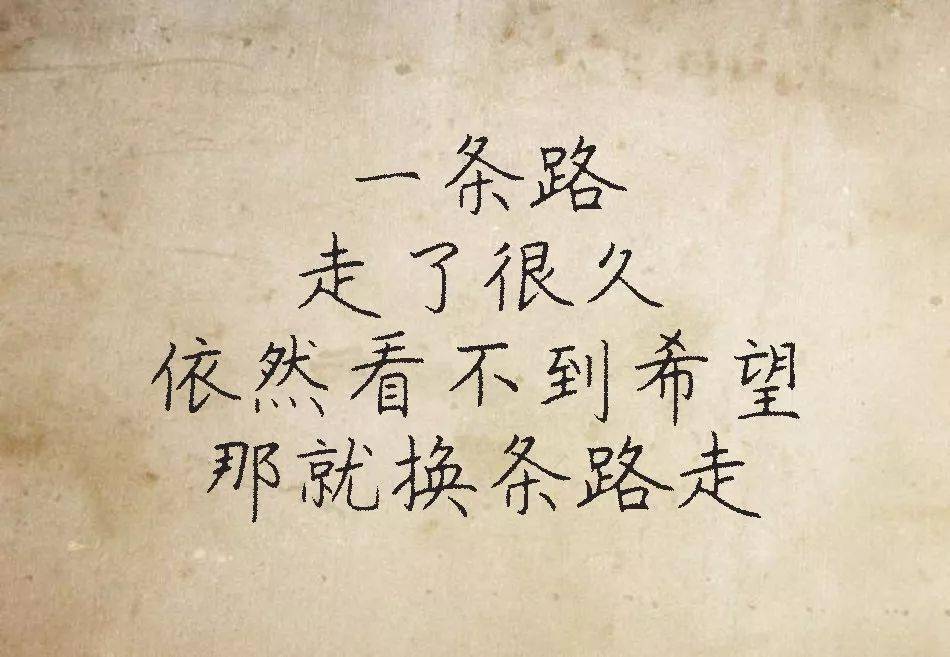 一条路
走了很久
依然看不到希望
那就换条路走